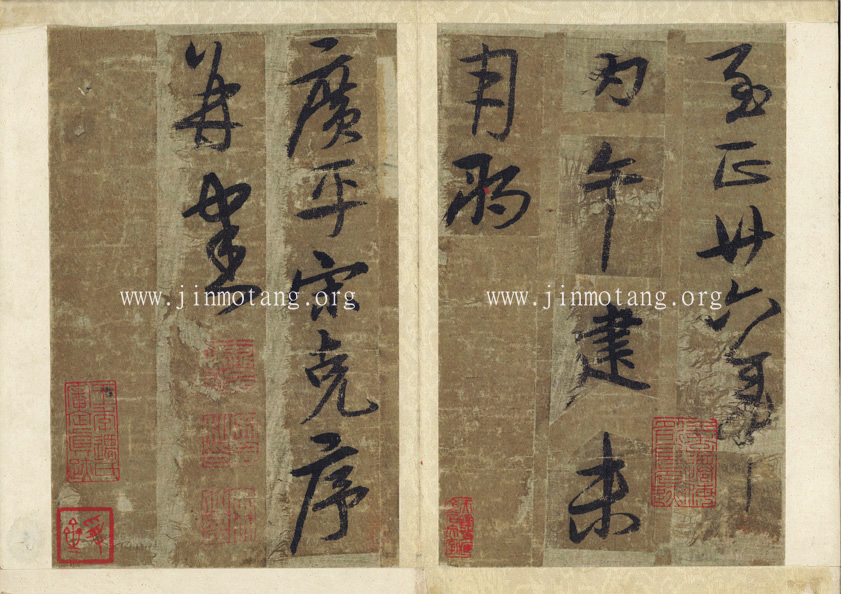 至正廿六年
丙午建未
月朔
廣平宋克序
并書
www.jinmotang.org
www.jinmotang.org